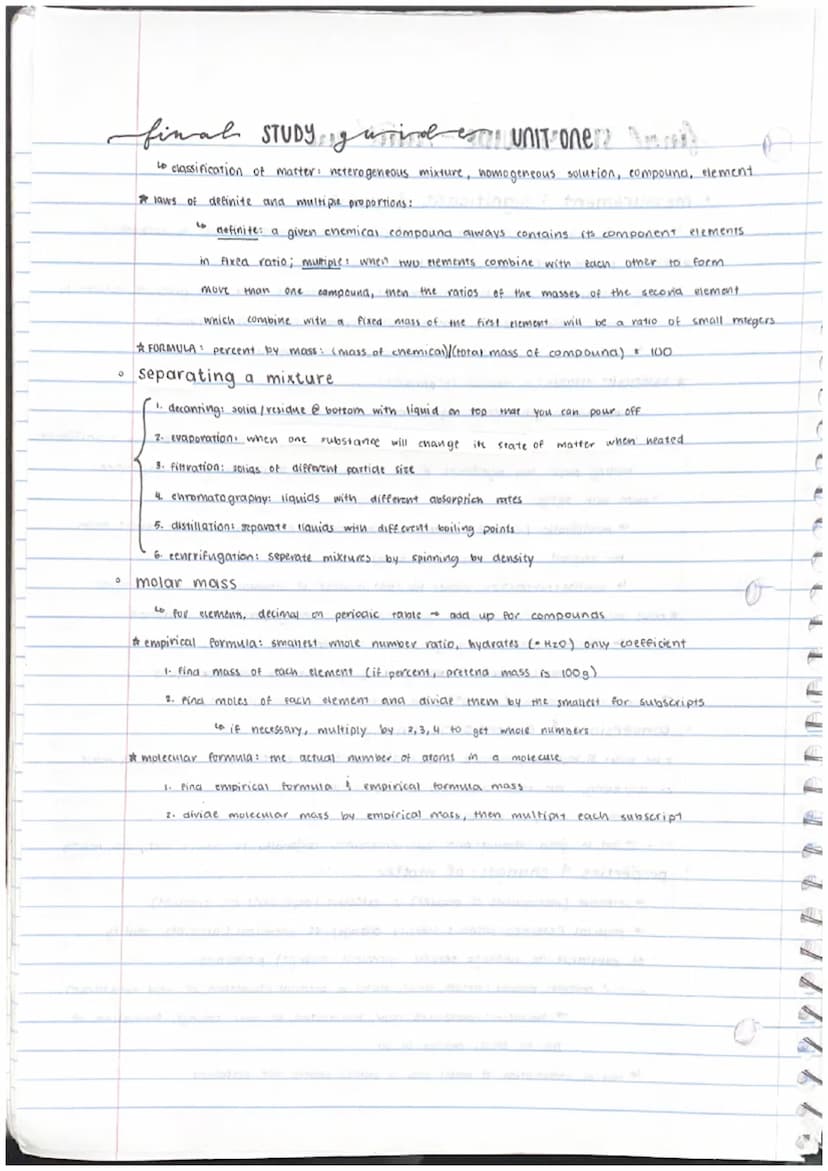 final STUDY guide: UNIT ONE
↳ classification of matter: heterogeneous mixture, homogeneous solution, compound, element
☆ laws of definite and multiple proportions:
↳ definite: a given chemical compound always contains its component elements
in fixed ratio; multiple: when two elements combine with each other to form
more than one compound, then the ratios of the masses of the second element
which combine with a fixed mass of the first element will be a ratio of small integers
☆ FORMULA: percent by mass: (mass of chemical)/(total mass of compound) * 100
◦ separating a mixture
1. decanting: solid/residue @ bottom with liquid on top that you can pour off
2. evaporation: when one substance will change its state of matter when heated
3. filtration: solids of different particle size
4. chromatography: liquids with different absorption rates
5. distillation: separate liquids with different boiling points
6. centrifugation: seperate mixtures by spinning by density
◦ molar mass
↳ for elements, decimal on periodic table → add up for compounds
☆ empirical formula: smallest whole number ratio, hydrates (• H2O) only coefficient
1. find mass of each element (if percent, pretend mass is 100g)
2. find moles of each element and divide them by the smallest for subscripts
↳ if necessary, multiply by 2,3,4 to get whole numbers
☆ molecular formula: the actual number of atoms in a molecule
1. find empirical formula & empirical formula mass
2. divide molecular mass by empirical mass, then multiply each subscript